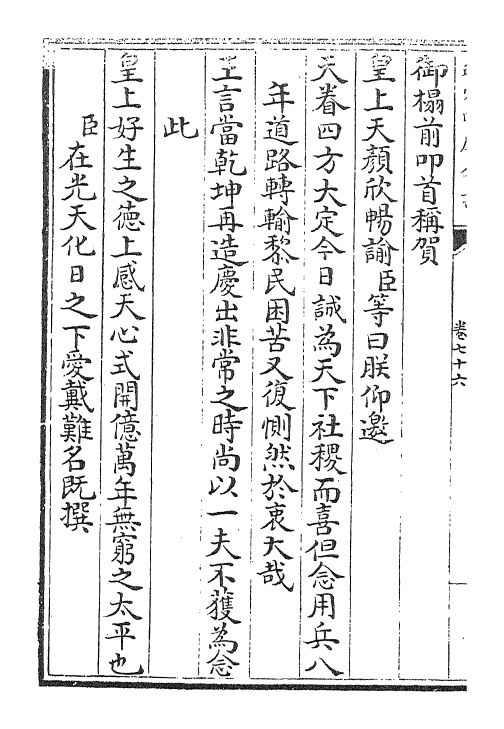 卷七十六
御榻前叩首稱賀
皇上天顏欣暢諭臣等曰朕仰邀
天眷四方大定今日誠為天下社稷而喜但念用兵八
年道路轉輸黎民困苦又復惻然於衷大哉
王言當乾坤再造慶出非常之時尚以一夫不獲為念
此
皇上好生之德上感天心式開億萬年無窮之太平也
臣在光天化日之下愛戴難名既撰